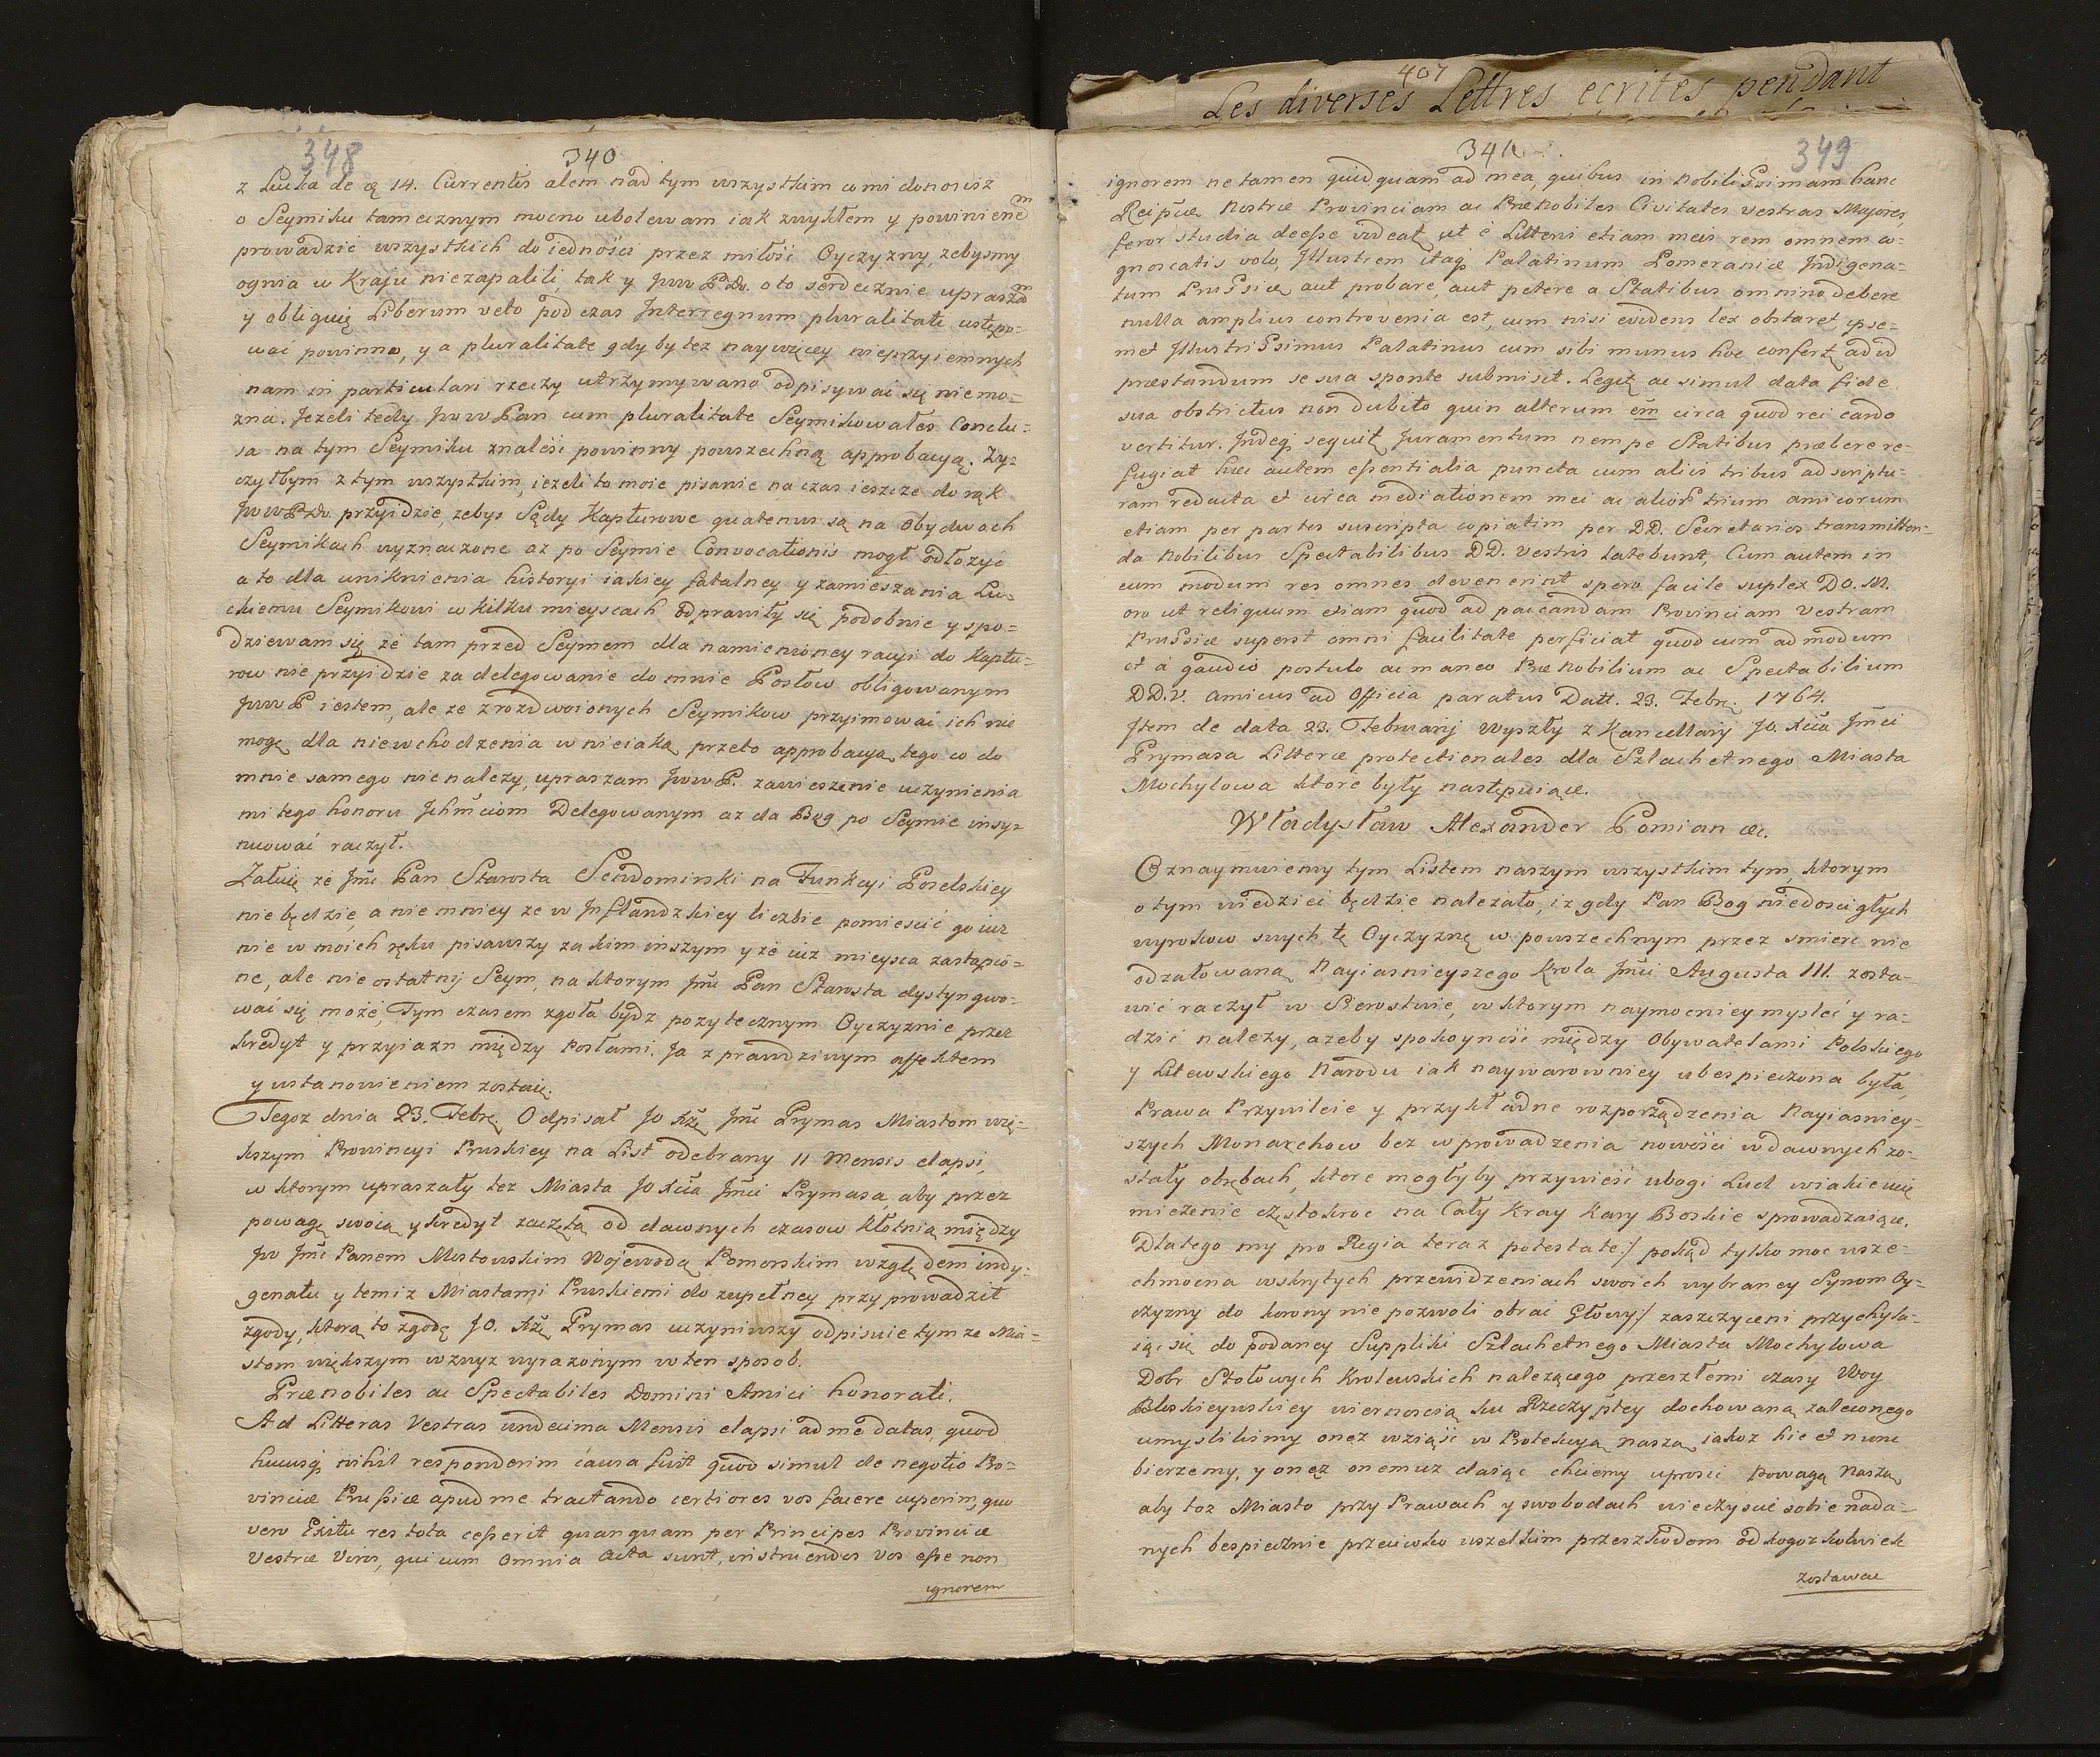 348
340
z Lucka de 14. Currentis alem nad tym wszystkim co mi donosisz
o Seymiku tamecznym mocno ubolewam iak zwykłem y powinienem
prowadzić wszystkich do iedności przez miłość Oyczyzny, zebysmy
ognia w Kraju niezapalili tak y JWWP Do. o to serdecznie upraszam
y obliguię Liberum veto pod czas Interregnum pluralitati ustępo=
wać powinno, y a pluralitate gdy by tez naywięcey nieprzyiemnych
nam in particulari rzeczy utrzymywano odpisywać się niemo=
zna. Jezeli tedy JWW Pan cum pluralitate Seymikowałes Conclu=
sa na tym Seymiku znaleść powinny powszechną approbacyą. Zy=
czyłbym z tym wszystkim, iezeli to moie pisanie na czas ieszcze do rąk
JWWP Do. przyidzie, zebys Sądy Kapturowe quatenus są na obydwoch
Seymikach wyznaczone az po Seymie Convocationis mogł odłozyć
a to dla uniknienia historyi iakiey fatalney y zamieszania Lu=
ckiemu Seymikowi w kilku mieyscach odprawiły się podobnie y spo=
dziewam się ze tam przed Seymem dla namienioney racyi do Kaptu=
row nie przyidzie za delegowanie do mnie Posłow obligowanym
JWWP iestem, ale ze z rozdwoionych Seymikow przyimować ich nie
mogę dla niewchodzenia w nieiaką przeto approbacyą tego co do
mnie samego nie nalezy, upraszam JWWP. zawieszenie uczynienia
mi tego honoru Ichmciom Delegowanym az da Bog po Seymie insy=
nuować raczył.
Załuię ze Jmć Pan Starosta Sendomirski na Funkcyi Poselskiey
nie będzie, a nie mniey ze w Inflandzkiey liczbie pomieścić go iuz
nie w moich ręku pisawszy za kim inszym y ze iuz mieysca zastąpio=
ne, ale nie ostatnij Seym, na ktorym Jmć Pan Starosta dystyngwo=
wać się moze, Tym czasem zgoła bydz pozytecznym Oyczyznie przez
kredyt y przyiazn między Posłami. Ja z prawdziwym affektem
y ustanowieniem zostaię.
Tegoz dnia 23. Febr. Odpisał JO Xżę Jmć Prymas Miastom wię=
kszym Prowincyi Pruskiey na List odebrany 11 Mensis elapsi,
w ktorym upraszały tez Miasta JO Xcia Jmci Prymasa, aby przez
powagę swoią y kredyt zaczętą od dawnych czasow kłotnią między
JW Jmć Panem Mostowskim Wojewodą Pomorskim względem indy=
genatu y temiz Miastami Pruskiemi do zupełney przyprowadził
zgody, ktorą to zgodę JO. Xżę Prymas uczyniwszy odpisuie tym ze Mia=
stom większym wzwyz wyrazonym w ten sposob.
Prænobiles ac Spectabiles Domini Amici honorati.
Ad Litteras Vestras undecima Mensis elapsi ad me datas, quod
hucusq nihil responderim causa fuit quod simul de negotio Pro=
vinciæ Prussiæ apud me tractando certiores vos facere cuperim, quo
vero Exitu res tota cesserit quanquam per Principes Provinciæ
Vestræ Viros, qui cum omnia acta sunt, instruendos vos esse non
ignorem
407
Les diverses Lettres ecrites pendant
341.
349
ignorem ne tamen quidquam ad mea, quibus in Nobilissimam hanc
Reipcæ Nostræ Provinciam ac Prænobiles Civitates vestras Majores,
feror studia deesse videat, ut e Litteris etiam meis rem omnem co=
gnoscatis volo, Illustrem itaq Palatinum Pomeraniæ Indigena=
tum Prussiæ, aut probare, aut petere a Statibus omnino debere
nulla amplius controversia est, cum nisi evidens lex obstaret, ipse=
met Illustrissimus Palatinus cum sibi munus hoc confert, ad id
præstandum se sua sponte submisit. Legit ac simul data fide
sua obstrictus non dubito quin alterum em circa quod rei cardo
vertitur. Indeq sequit Juramentum nempe Statibus præbere re=
fugiat hæc autem essentialia puncta cum aliis tribus ad scriptu=
ram reducta et circa mediationem mei ac alior trium amicorum
etiam per partes suscripta copiatim per DD. Secretarios transmitten=
da Nobilibus Spectabilibus DD. Vestris patebunt, Cum autem in
eum modum res omnes devenerint spero facile suplex D.O.M.
oro ut reliquum etiam quod ad pacandam Provinciam Vestram
Prussiæ superest omni facilitate perficiat quod cum admodum
et a gaudio postulo ac maneo Prænobilium ac Spectabilium
DD.V. Amicus ad Officia paratus Datt. 23. Febr. 1764.
Item de data 23. Februarij wyszły z Kancellarij JO. Xcia Jmci
Prymasa Litteræ protectionales dla Szlachetnego Miasta
Mochylowa ktore były następuiące.
Władysław Alexander Pomian &c.
Oznaymuiemy tym Listem naszym wszystkim tym, ktorym
o tym wiedzieć będzie nalezało, iz gdy Pan Bog niedoscigłych
wyrokow swych tę Oyczyznę w powszechnym przez smierc nie
odzałowaną Nayiasnieyszego Krola Jmci Augusta III. zosta=
wić raczył w Sieroctwie, w ktorym naymocniey mysleć y ra=
dzić nalezy, azeby spokoyność między Obywatelami Polskiego
y Litewskiego Narodu iak naywarowniey ubespieczona była,
Prawa Przywileie y przykładne rozporządzenia Nayiasniey=
szych Monarchow bez wprowadzenia nowości w dawnych zo=
stały obrębach, ktore mogłyby przywieść ubogi Lud w iakie uci
mięzenie częstokroc na Cały Kray Kary Boskie sprowadzaiące.
Dlatego my pro Regia teraz potestate :/ pokąd tylko moc wsze=
chmocna w skrytych przewidzeniach swoich wybraney Synom Oy=
czyzny do korony nie pozwoli obrać Głowy :/ zaszczyceni przychyla=
iąc się do podaney Suppliki Szlachetnego Miasta Mochylowa
Dobr Stołowych Krolewskich nalezącego przeszłemi czasy Woy
umyslilismy onez wziąść w Protekcyą naszą, iakoz hic et nunc
bierzemy, y onęz onemuz daiąc chcemy uprosić powagą Naszą,
aby toz Miasto przy Prawach y swobodach wieczyscie sobie nada=
nych bespiecznie przeciwko wszelkim przeszkodom od kogoz kolwiek
zostawać